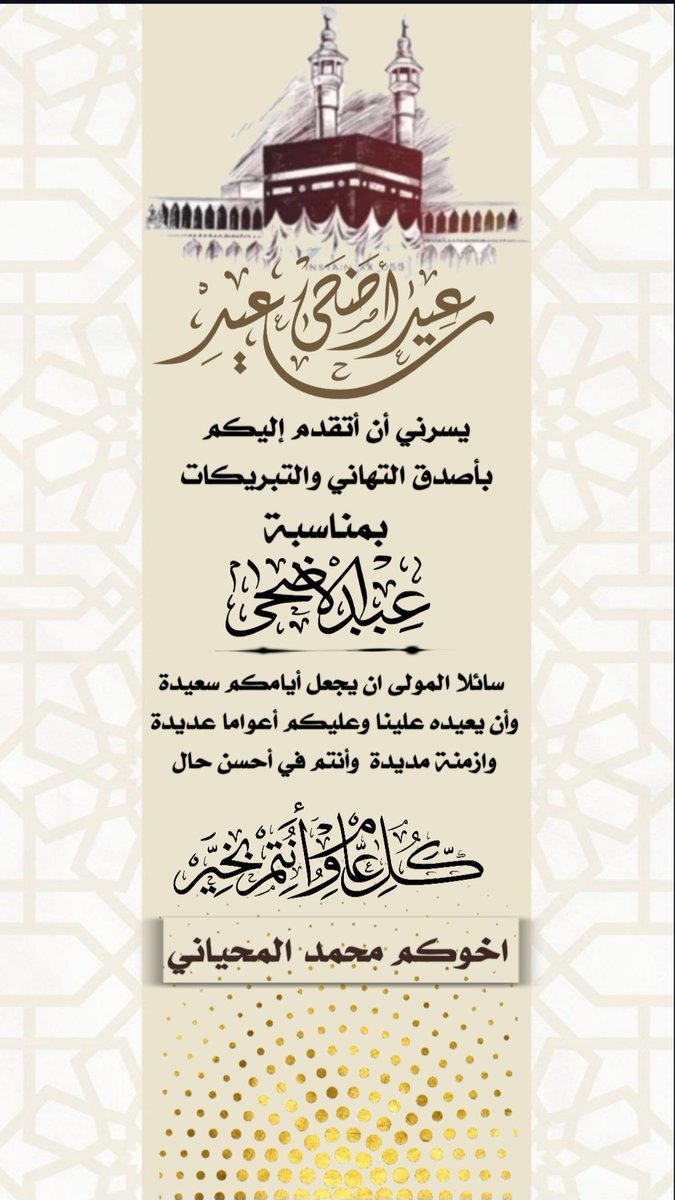 عيد أضحى سعيد
يسرني أن أتقدم إليكم
بأصدق التهاني والتبريكات
بمناسبة
عيد الاضحى
سائلا المولى ان يجعل أيامكم سعيدة
وأن يعيده علينا وعليكم أعواما عديدة
وازمنة مديدة وأنتم في أحسن حال
كُل عَام وَأَنتُم بخَيرٍ
اخوكم محمد المحياني